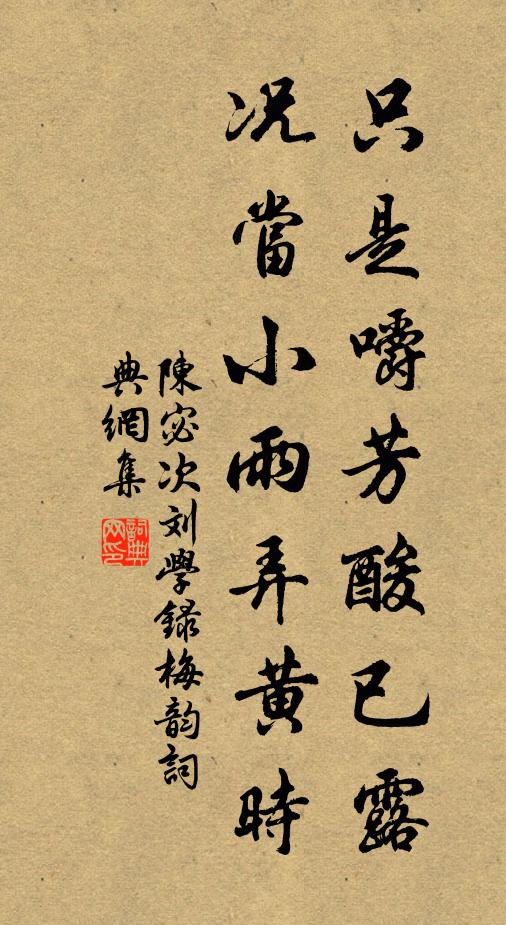 只是嚼芳酸已露
况當小雨弄黄時
陳宓次刘學録梅韵詞
典網集
詞典网印